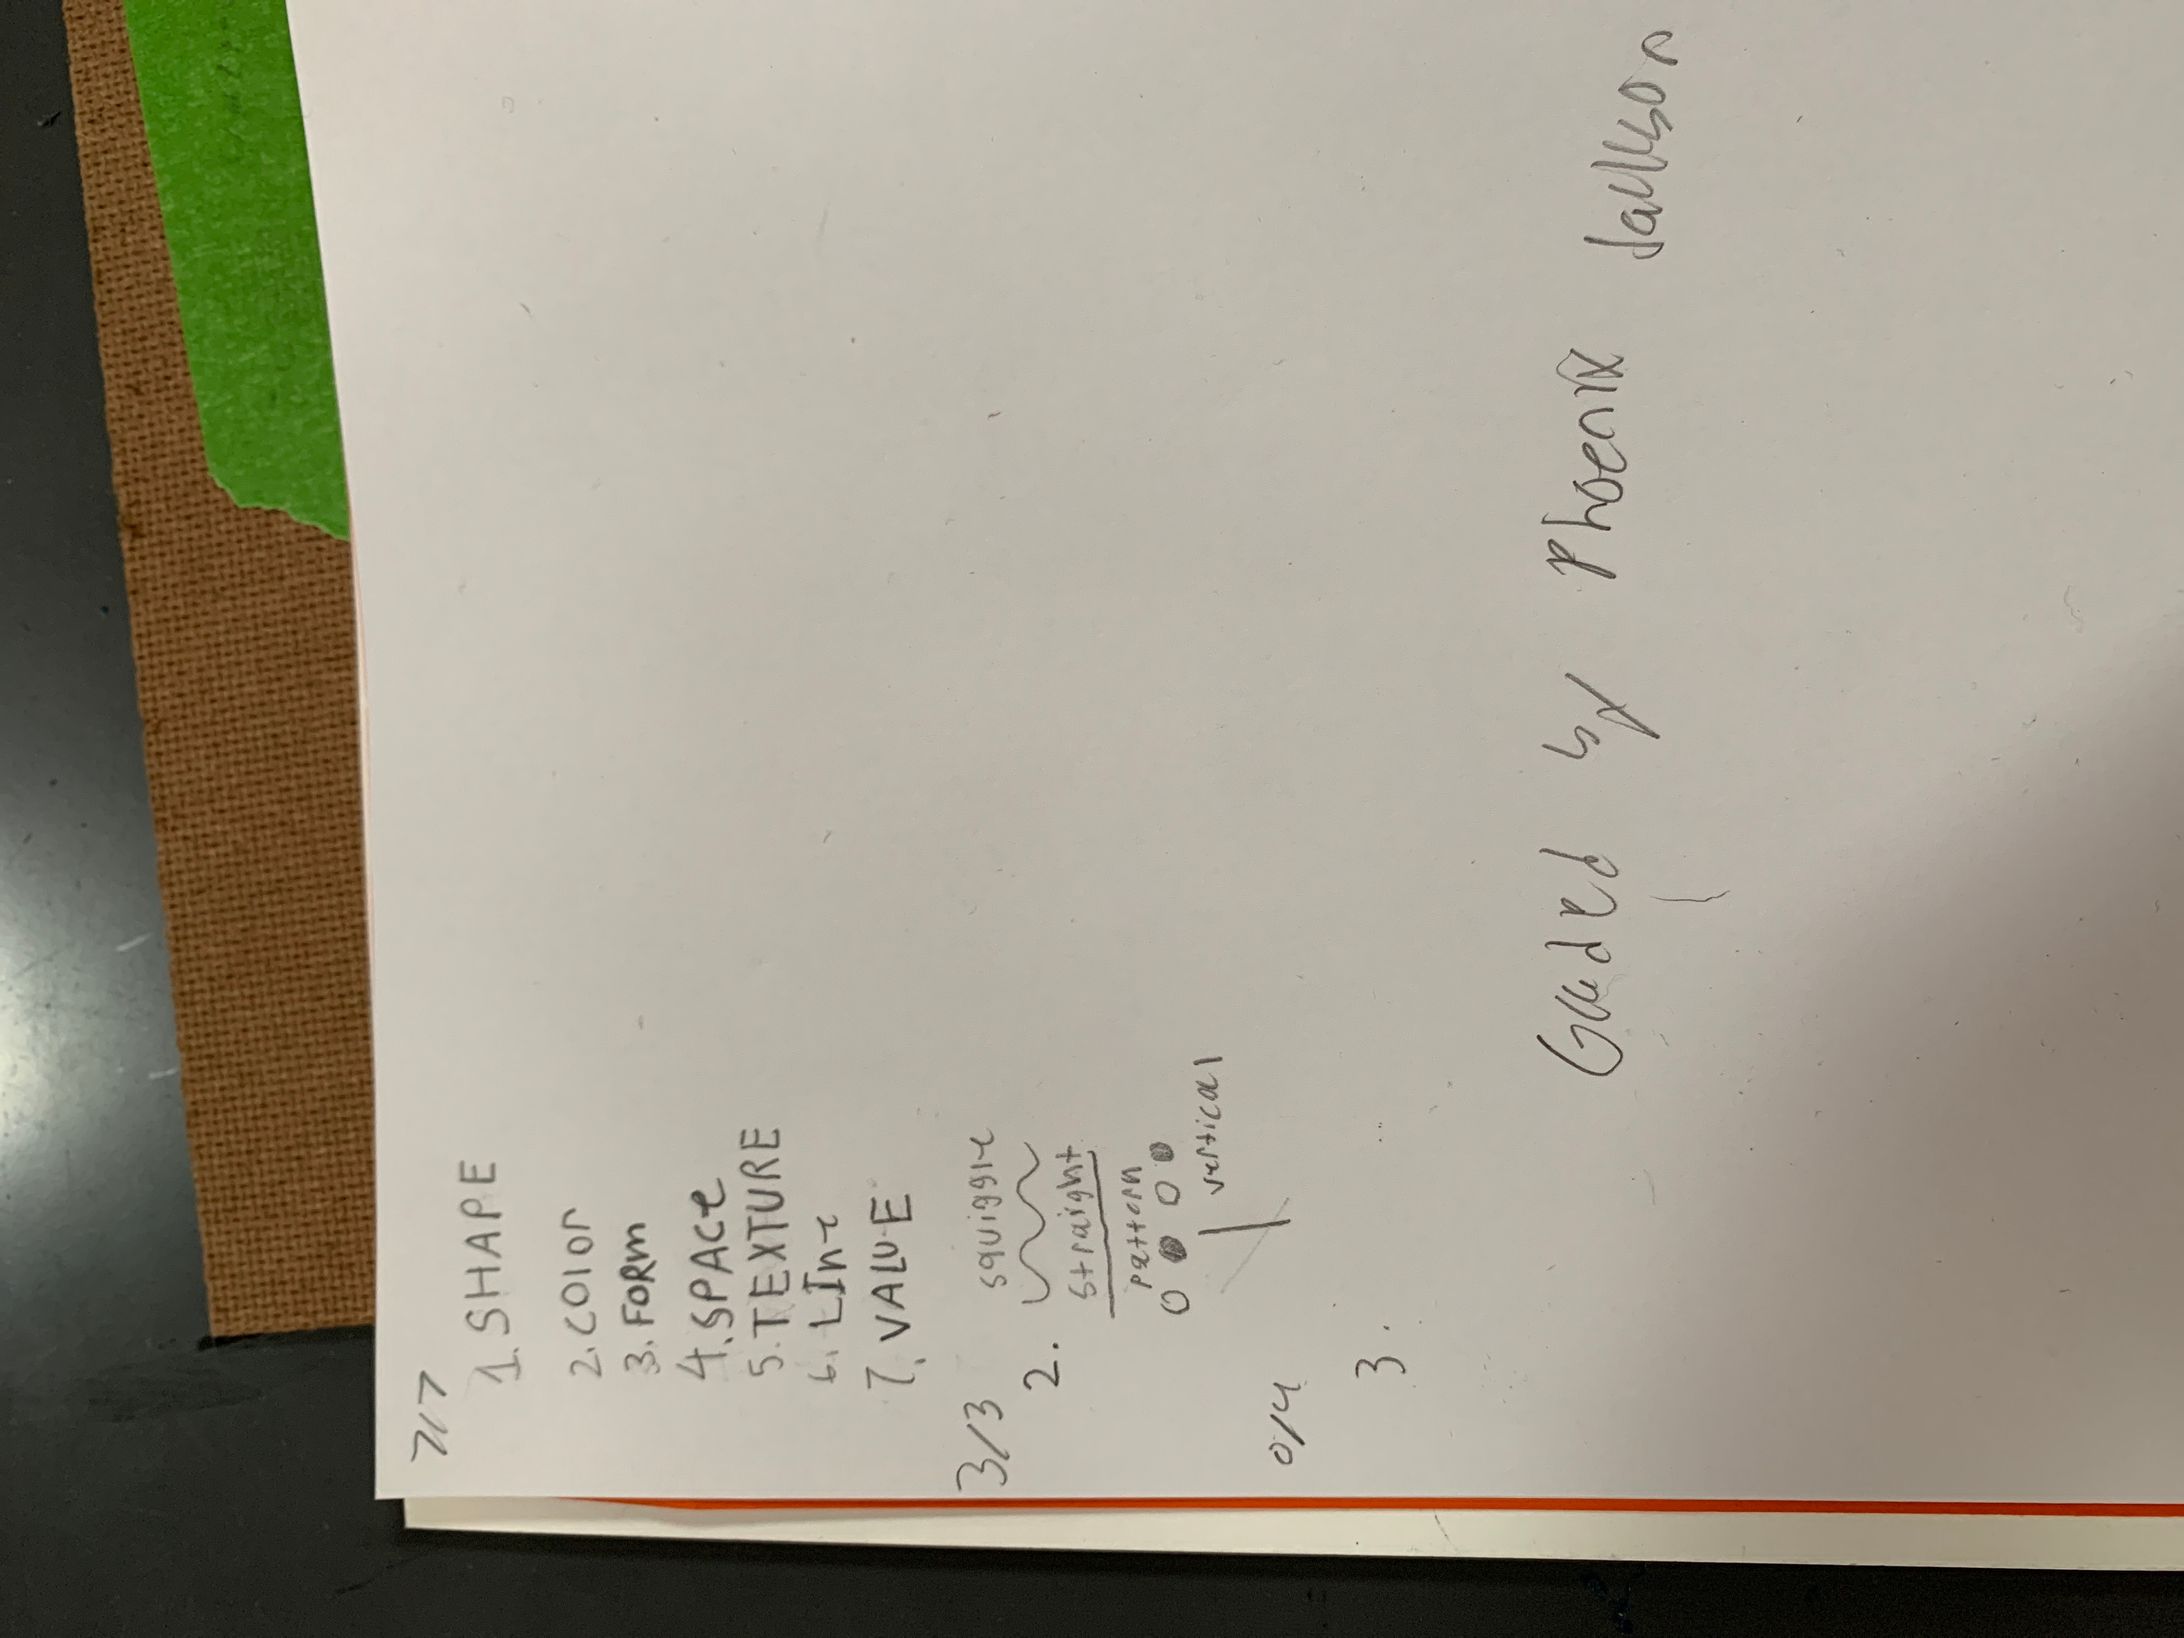 7/7
1. SHAPE
2. COlOr
3. FORM
4. SPACe
5. TEXTURE
6. LIne
7. VALUE
3/3
squiggle
2.
straight
pattern
vertical
0/4
3.
Graded by Phoenix Jackson